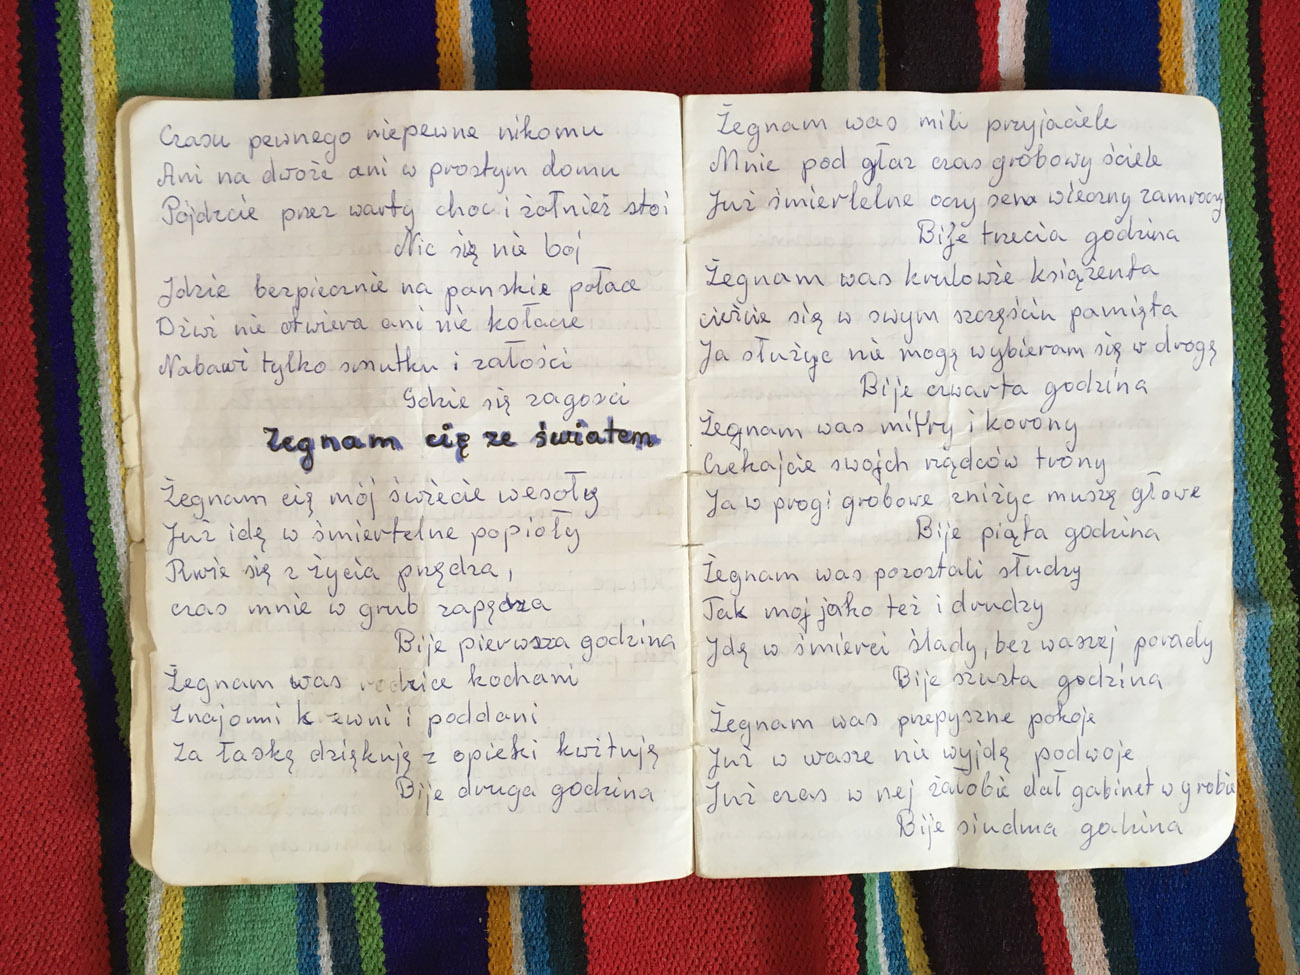 Czasu pewnego niepewne nikomu
Ani na dwoże ani w prostym domu
Pójdzcie przez warty choc i żołnież stoi
Nic się nie boj
Jdzie bezpiecznie na panskie połace
Dżwi nie otwiera ani nie kołacze
Nabawi tylko smutku i załości
Gdzie się zagosci
Żegnam cię ze światem
Żegnam cię mój świecie wesoły
Już idę w śmiertelne popioły
Rwie się z życia przędza,
czas mnie w grub zapędza
Bije pierwsza godzina
Żegnam was rodzice kochani
Znajomi krewni i poddani
Za łaskę dziękuję z opieki kwituję
Bije druga godzina
Żegnam was mili przyjaciele
Mnie pod głaz czas grobowy ściele
Już śmiertelne oczy sen wieczny zamroczy
Bije trzecia godzina
Żegnam was krulowie książenta
cieście się w swym szczęściu pamięta
Ja służyc nie mogę wybieram się w drogę
Bije czwarta godzina
Żegnam was mitry i korony
Czekajcie swojch rządców trony
Ja w progi grobowe zniżyc muszę głowe
Bije piąta godzina
Żegnam was pozostali słudzy
Tak moj jako też i drudzy
Jdę w śmierci ślady, bez waszej porady
Bije szusta godzina
Żegnam was przepyszne pokoje
Już w wasze nie wyjdę podwoje
Już czas w nej żałobie dał gabinet w grobie
Bije siudma godzina